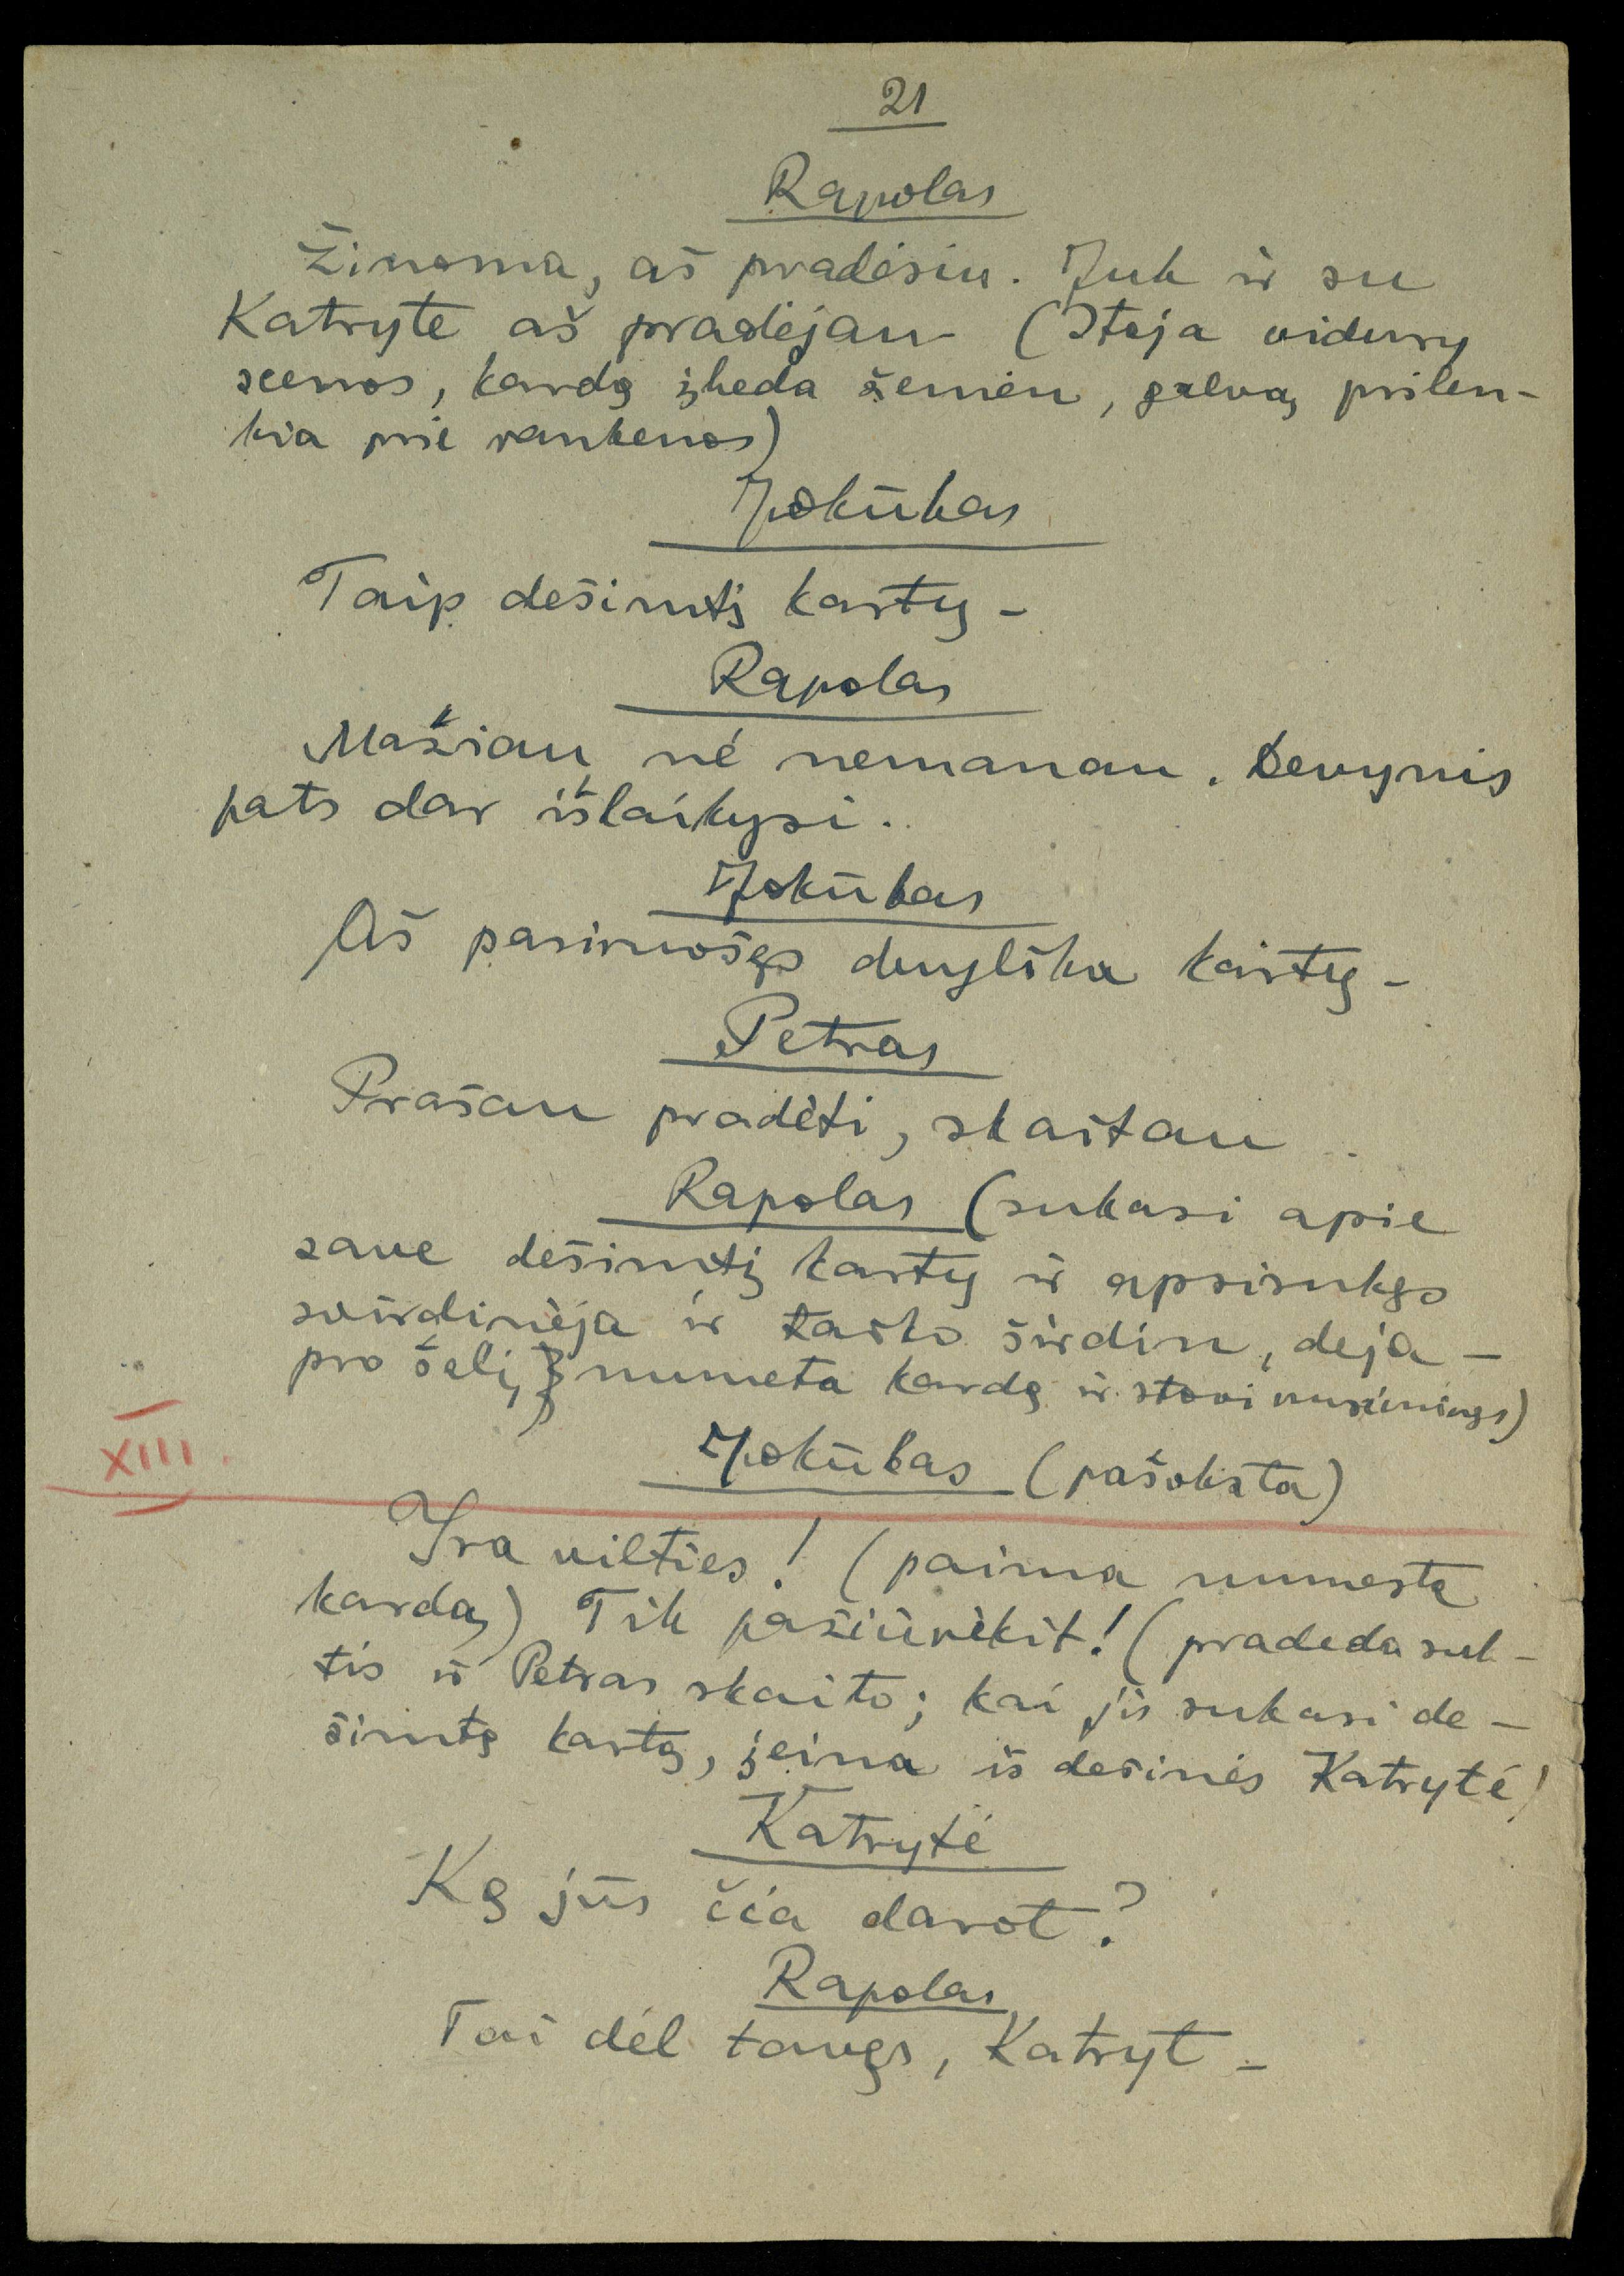 21
Rapolas
Žinoma, aš pradėsiu. Juk ir su
Katryte aš pradėjau – (Stoja vidury
scenos, kardą įkeda žemėn, galvą prilen-
kia prie rankenos)
Jokūbas
Taip dešimtį kartų –
Rapolas
Mažiau nė nemanau. Devynis
pats dar išlaikysi.
Jokūbas
Aš pasiruošęs dvylika kartų –
Petras
Prašau pradėti, skaitau
Rapolas (sukasi apie
save dešimtį kartų ir apsisukęs
svirdinėja ir taiko širdin, deja –
pro šalį, numeta kardą ir stovi nusiminęs)
XIII.
Jokūbas (pašoksta)
Yra vilties! (paima numestą
kardą) Tik pažiūrėkit! (pradeda suk-
tis ir Petras skaito; kai jis sukasi de-
šimtą kartą, įeina iš dešinės Katrytė)
Katrytė
Ką jūs čia darot?
Rapolas
Tai dėl tavęs, Katryt –